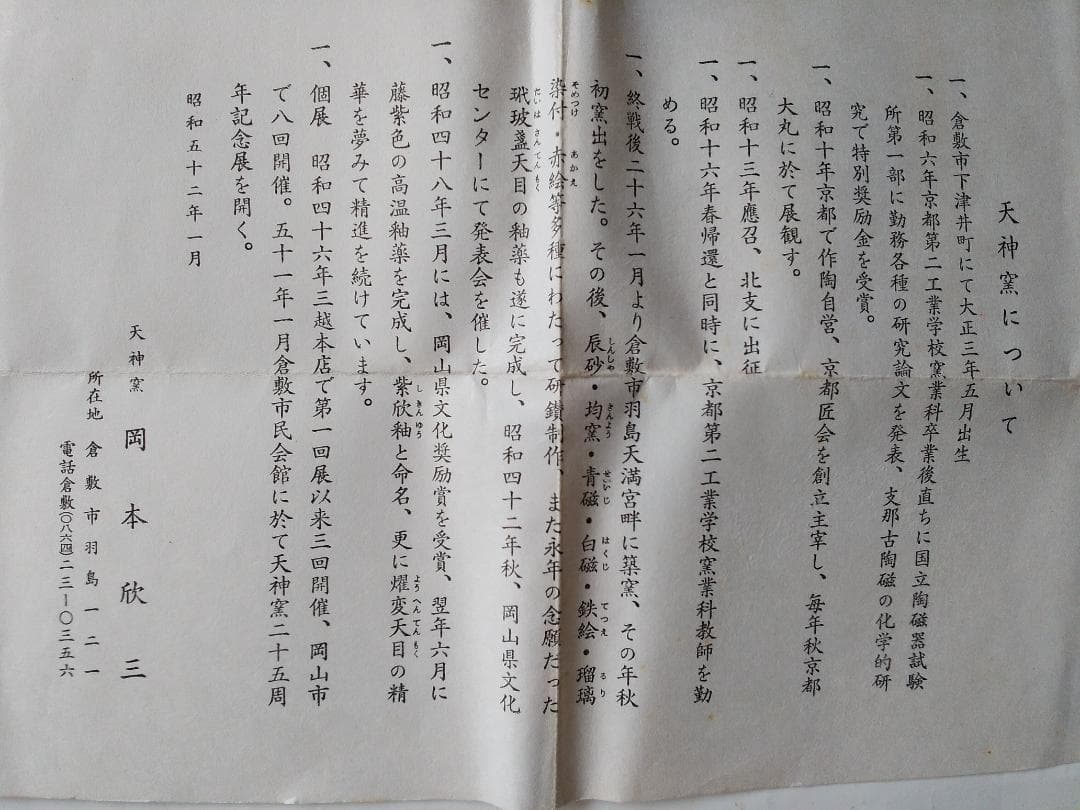 天神窯について
一、倉敷市下津井町にて大正三年五月出生
一、昭和六年京都第二工業学校窯業科卒業後直ちに国立陶磁器試験
所第一部に勤務各種の研究論文を発表、支那古陶磁の化学的研
究で特別奨励金を受賞。
一、昭和十年京都で作陶自営、京都匠会を創立主宰し、毎年秋京都
大丸に於て展観す。
一、昭和十三年應召、北支に出征
一、昭和十六年春帰還と同時に、京都第二工業学校窯業科教師を勤
める。
一、終戦後二十六年一月より倉敷市羽島天満宮畔に築窯、その年秋
初窯出をした。その後、辰砂・均窯・青磁・白磁・鉄絵・瑠璃
しんしゃ きんよう せいじ はくじ てつえ るり
染付・赤絵等多種にわたって研鑽制作、また永年の念願だった
そめつけ あかえ
玳玻盞天目の釉薬も遂に完成し、昭和四十二年秋、岡山県文化
たいはさんてんもく
センターにて発表会を催した。
一、昭和四十八年三月には、岡山県文化奨励賞を受賞、翌年六月に
藤紫色の高温釉薬を完成し、紫欣釉と命名、更に燿変天目の精
しきんゆう ようへんてんもく
華を夢みて精進を続けています。
一、個展 昭和四十六年三越本店で第一回展以来三回開催、岡山市
で八回開催。五十一年一月倉敷市民会館に於て天神窯二十五周
年記念展を開く。
昭和五十二年一月
天神窯 岡本欣三
所在地 倉敷市羽島一二一
電話倉敷(〇八六四)二三―〇三五六